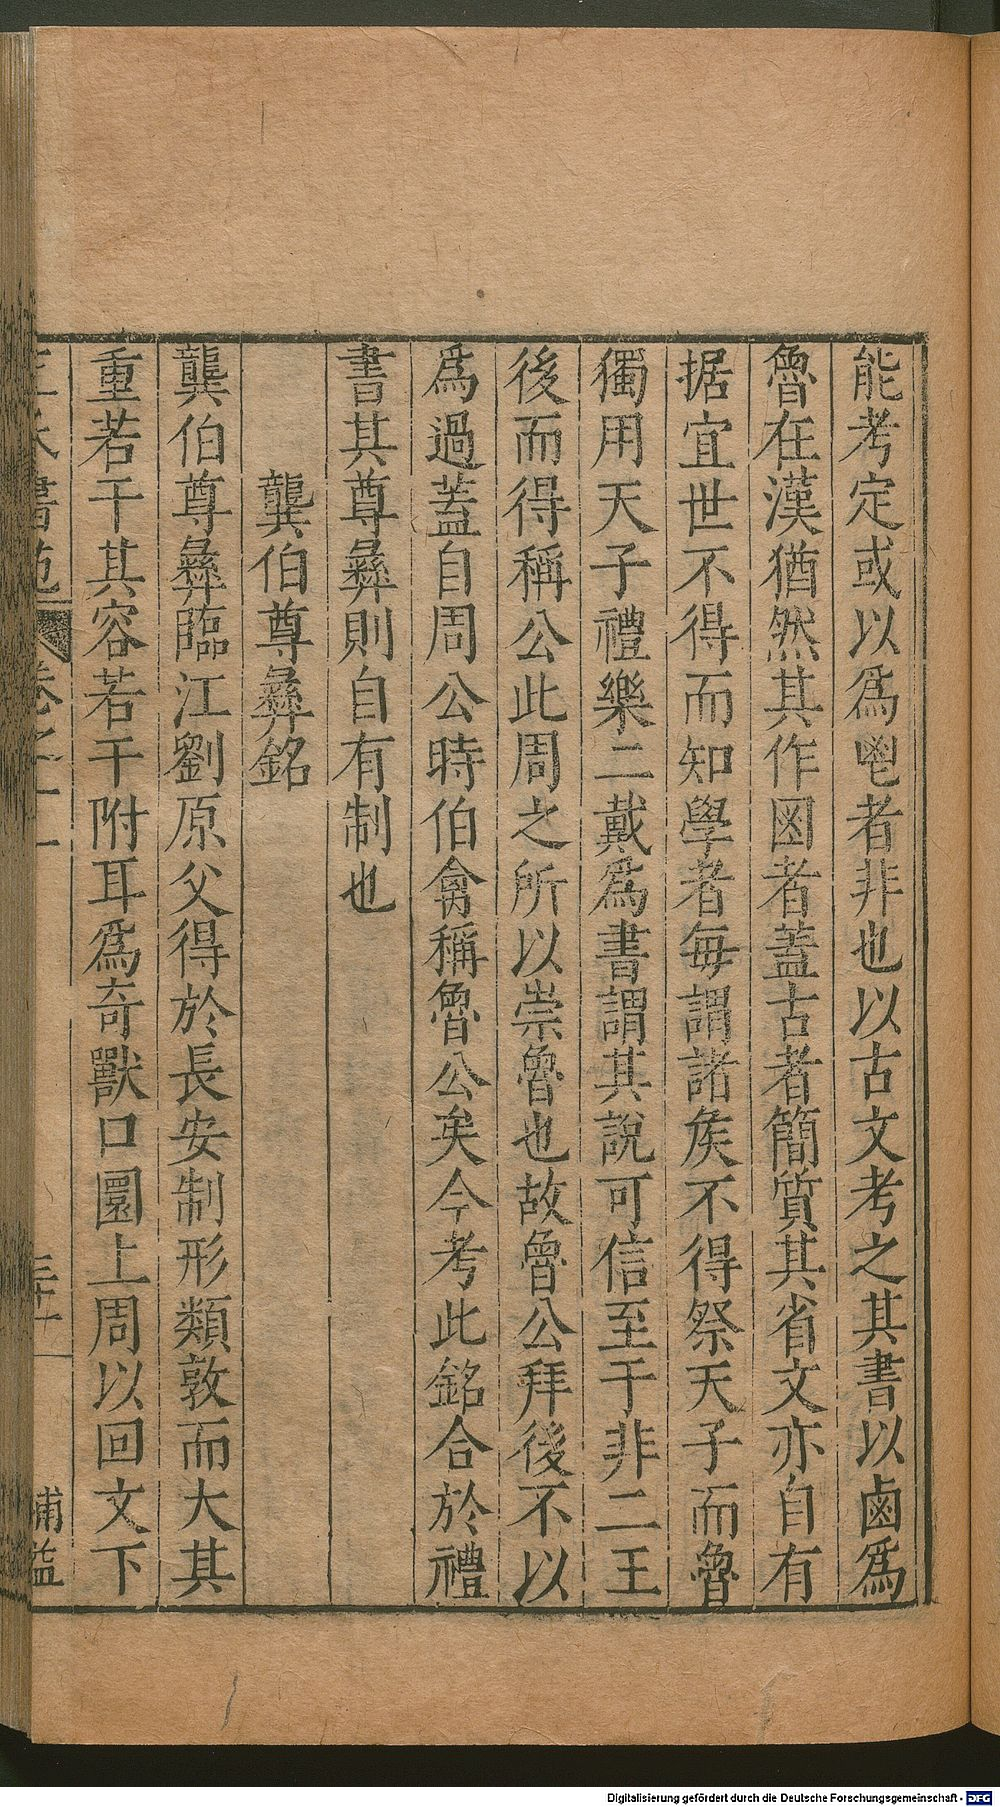 能考定或以爲鬯者非也以古文考之其書以鹵爲
魯在漢猶然其作囟者蓋古者簡質其省文亦自有
据宜世不得而知學者每謂諸矦不得祭天子而魯
獨用天子禮樂二戴爲書謂其說可信至于非二王
後而得稱公此周之所以崇魯也故魯公拜後不以
爲過蓋自周公時伯禽稱魯公矣今考此銘合於禮
書其尊彝則自有制也
龔伯尊彝銘
龔伯尊彝臨江劉原父得於長安制形類敦而大其
重若干其容若干附耳爲奇獸口圜上周以回文下
書苑 卷之
補益
Digitalisierung gefördert durch die Deutsche Forschungsgemeinschaft - DFG